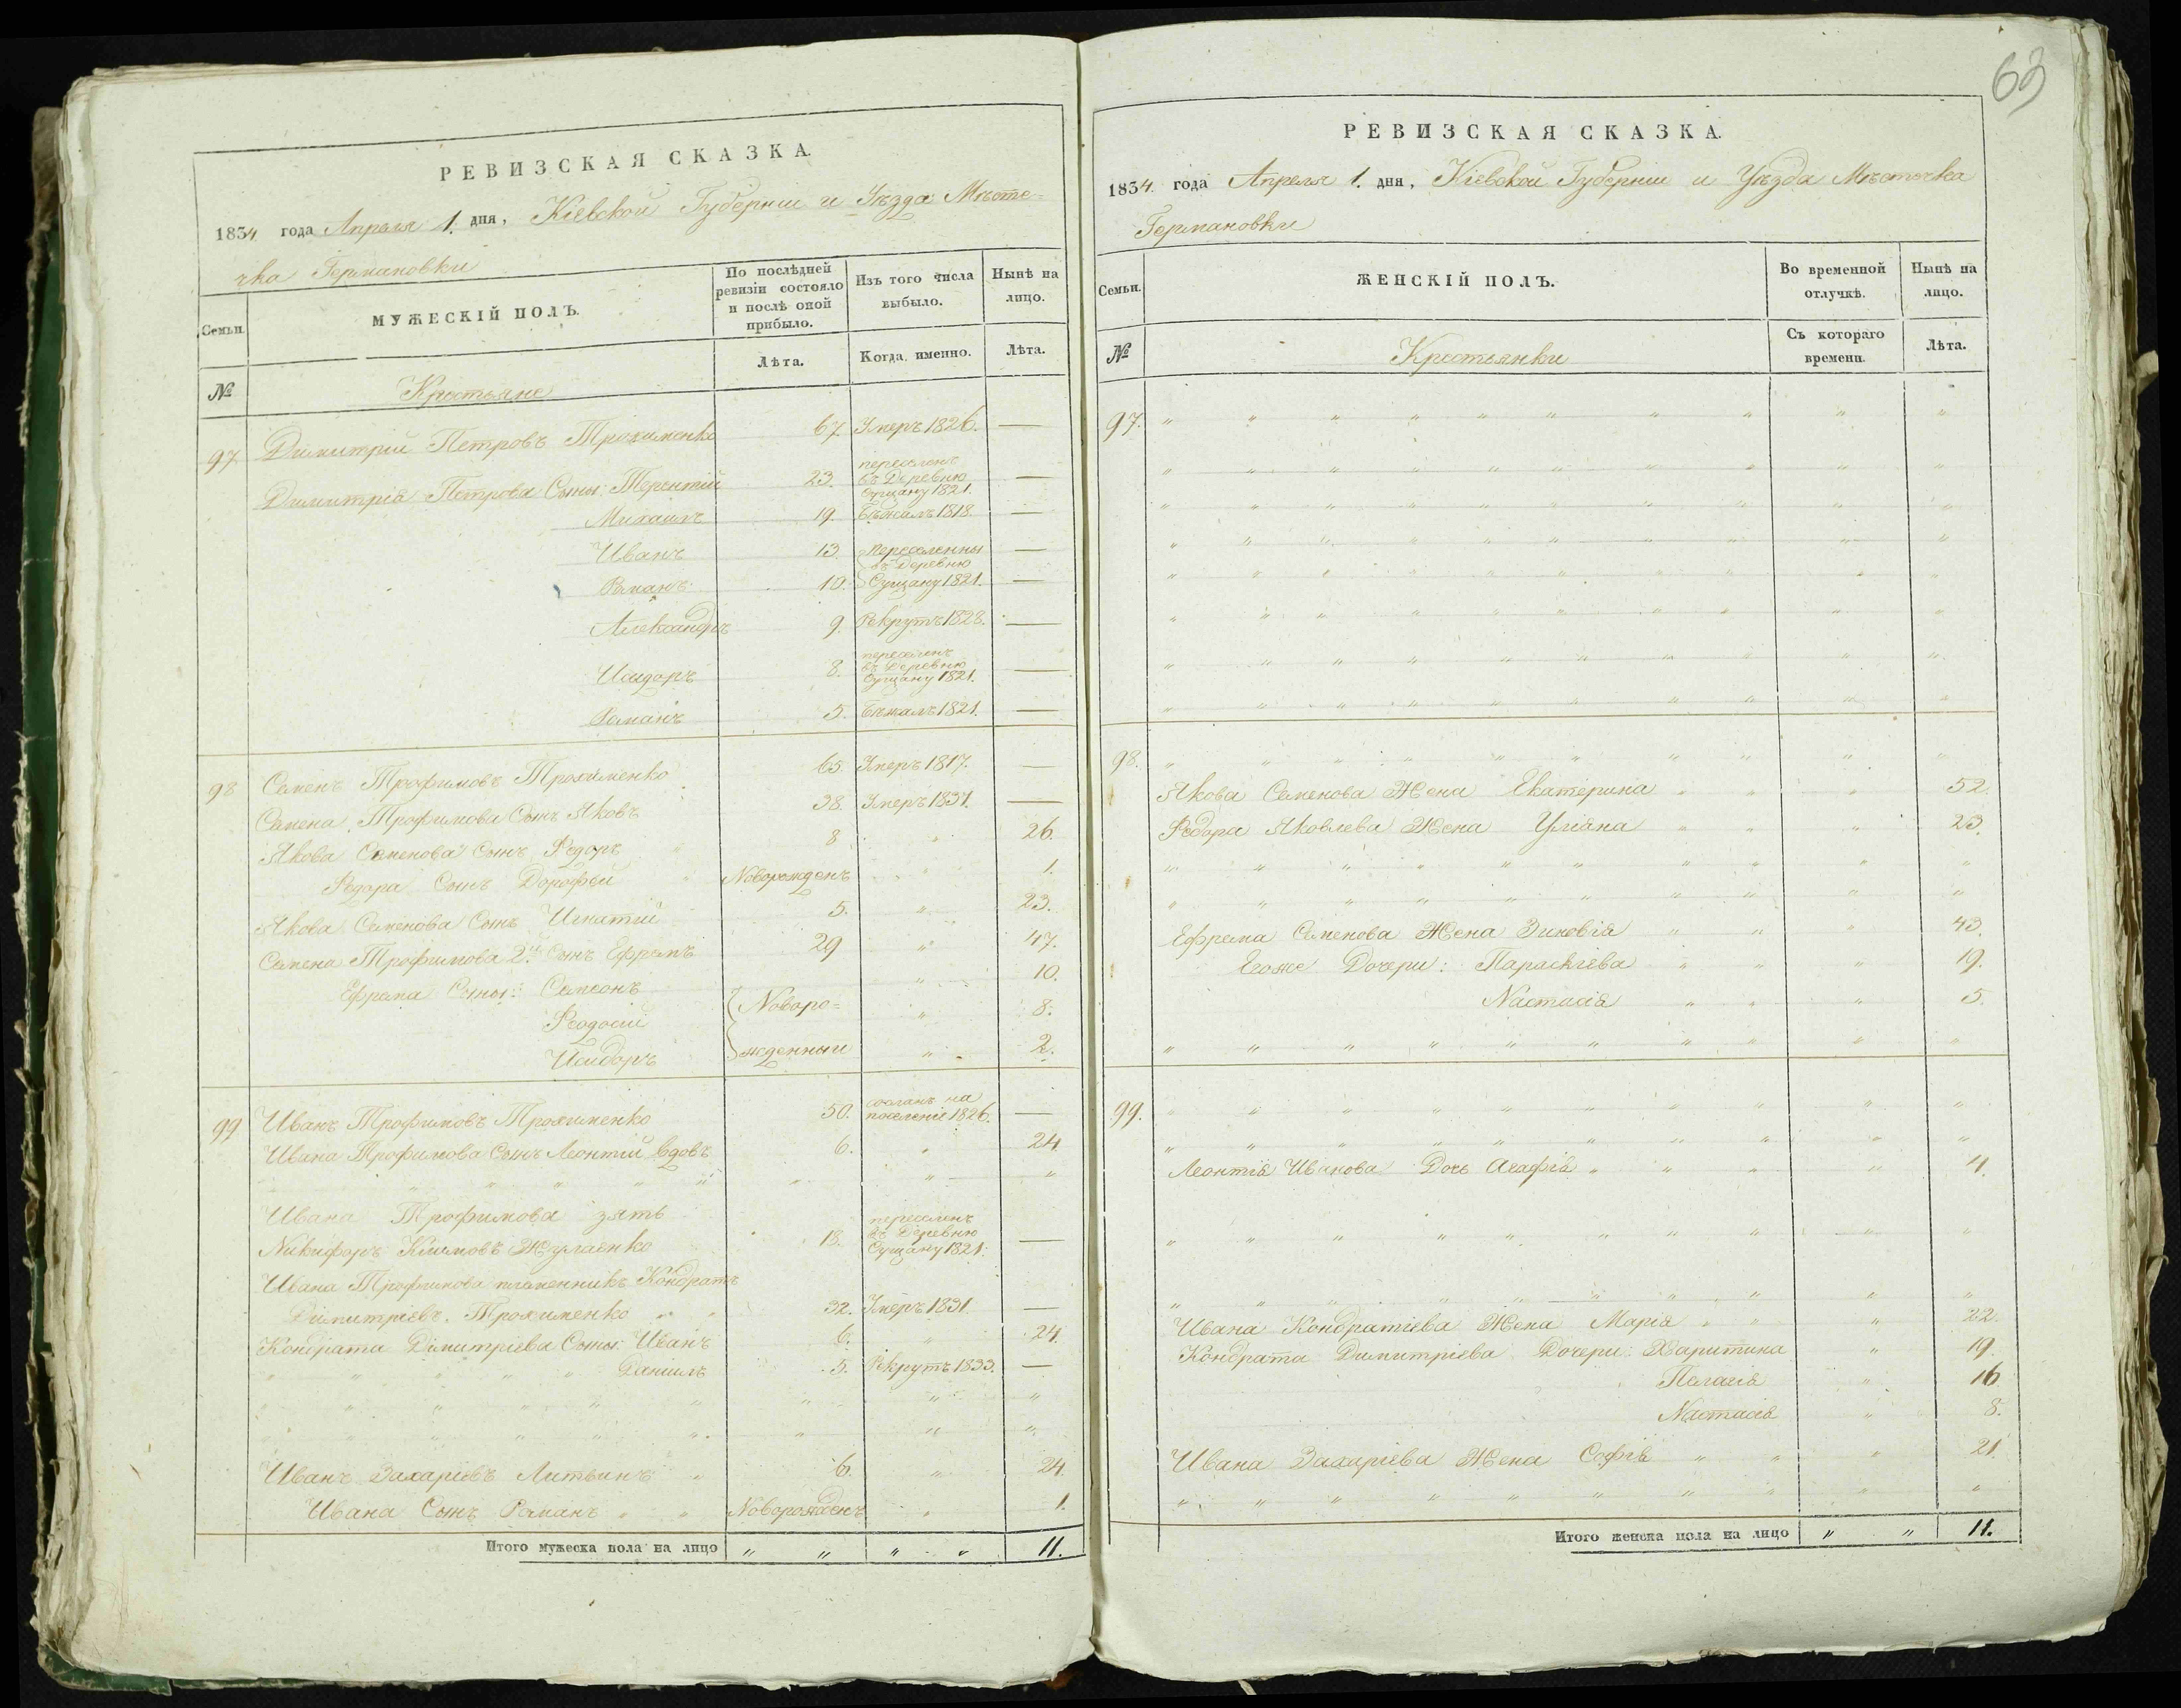 РЕВИЗСКАЯ СКАЗКА.
1834 года Апреля 1. дня, Кіевской Губерніи и Уѣзда Мѣсте-
чка Германовки
Семьи.
МУЖЕСКІЙ ПОЛЪ.
По послѣдней ревизіи состояло и послѣ оной прибыло.
Изъ того числа выбыло.
Нынѣ на лицо.
№
Крестьяне
Лѣта.
Когда именно.
Лѣта.
97 Димитрій Петровъ Трохименко 67. Умеръ 1826. —
Димитрія Петрова Сыны: Терентій 23. переселенъ въ Деревню Сущану 1821. —
Михаилъ 19. Бѣжалъ 1818. —
Иванъ 13. переселенны —
въ Деревню
Романъ 10. Сущану 1821. —
Александръ 9. Рекрутъ 1828. —
Исидоръ 8. переселенъ въ Деревню Сущану 1821. —
Романъ 5. Бѣжалъ 1821. —
98 Семенъ Трофимовъ Трохименко 65. Умеръ 1817. —
Семена Трофимова Сынъ Яковъ 38. Умеръ 1831. —
Якова Семенова Сынъ Федоръ 8 " 26.
Федора Сынъ Дорофей Новорожденъ " 1.
Якова Семенова Сынъ Игнатій 5. " 23.
Семена Трофимова 2й Сынъ Ефремъ 29 " 47.
Ефрема Сыны: Самсонъ " 10.
Феодосій Новоро= " 8.
Исидоръ жденныи " 2.
99 Иванъ Трофимовъ Трохименко 50. сосланъ на поселеніе 1826. —
Ивана Трофимова Сынъ Леонтій вдовъ 6. " 24
" " " " " " " "
Ивана Трофимова зять
Никифоръ Климовъ 18. переселенъ въ Деревню Сущану 1821. —
Ивана Трофимова племенникъ Кондратъ
Димитріевъ Трохименко " " 32. Умеръ 1831. —
Кондрата Димитріева Сыны: Иванъ 6. " 24.
" " " " " Даніилъ 5. Рекрутъ 1833. —
" " " " " " " " "
" " " " " " " " "
Иванъ Захаріевъ Литвинъ " 6. " 24.
Ивана Сынъ Романъ " " Новорожденъ " 1.
Итого мужеска пола на лицо " " " " 11.
63
РЕВИЗСКАЯ СКАЗКА.
1834 года Апреля 1. дня, Кіевской Губерніи и Уѣзда Мѣстечка
Германовки
Семьи.
ЖЕНСКІЙ ПОЛЪ.
Во временной отлучкѣ.
Нынѣ на лицо.
№
Крестьянки
Съ котораго времени.
Лѣта.
97. " " " " " " " " " "
" " " " " " " " " "
" " " " " " " " " "
" " " " " " " " " "
" " " " " " " " " "
" " " " " " " " " "
" " " " " " " " " "
" " " " " " " " " "
98. " " " " " " " " " "
Якова Семенова Жена Екатерина " " " 52.
Федора Яковлева Жена Уліана " " " 23.
" " " " " " " " " "
" " " " " " " " " "
Ефрема Семенова Жена Зиновія " " " 43.
Егоже Дочери: Параскіева " " " 19.
Настасія " " " 5.
" " " " " " " " " "
99. " " " " " " " " " "
" " " " " " " " " "
Леонтія Иванова Дочь Агафія " " " " 4.
" " " " " " " " " "
" " " " " " " " " "
Ивана Кондратіева Жена Марія " " " 22.
Кондрата Димитріева Дочери: Харитина " 19.
Пелагія " 16
Настасія " 8.
Ивана Захаріева Жена Софія " " " 21
" " " " " " " " " "
Итого женска пола на лицо " " 11.